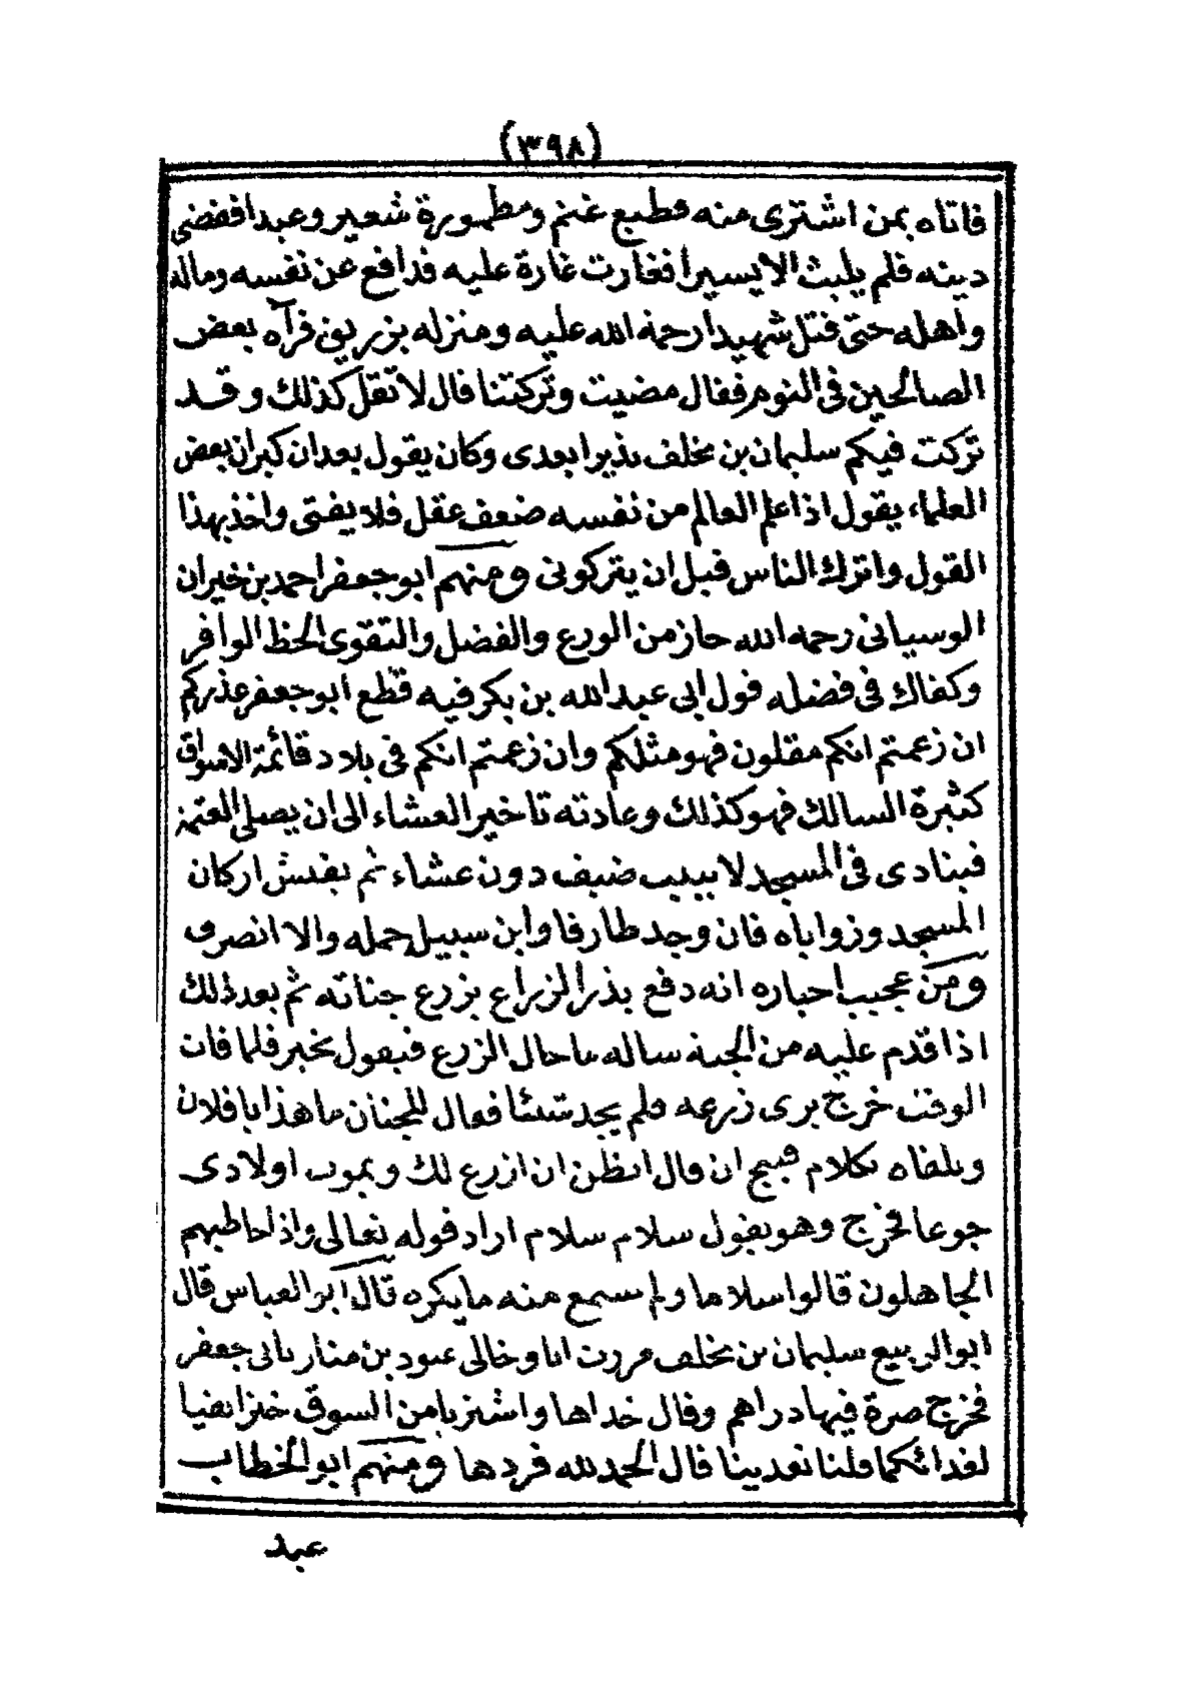 (٣٩٨)
فاتاه بمن اشترى منه قطيع غنم ومطمورة شعير وعبدا فقضى
دينه فلم يلبث الا يسيرا فغارت غارة عليه فدافع عن نفسه وماله
واهله حتى قتل شهيدا رحمة الله عليه ومنزله بزريق فرآه بعض
الصالحين فى النوم فقال مضيت وتركتنا قال لا تقل كذلك وقد
تركت فيكم سليمان بن يخلف نذيرا بعدى وكان يقول بعد ان كبر ان بعض
العلماء يقول اذا علم العالم من نفسه ضعف عقل فلا يفتى واخذ بهذا
القول واترك الناس قبل ان يتركونى ومنهم ابو جعفر احمد بن خيران
الوسيانى رحمه الله حاز من الورع والفضل والتقوى الحظ الوافر
وكفاك فى فضله قول ابى عبد الله بن بكر فيه قطع ابو جعفر عذركم
ان زعمتم انكم مقلون فهو مثلكم وان زعمتم انكم فى بلاد قائمة الاسواق
كثيرة السالك فهو كذلك وعادته تاخير العشاء الى ان يصلى العتمة
فينادى فى المسجد لا يبيت ضيف دون عشاء ثم يفتش اركان
المسجد وزواياه فان وجد طارقا وابن سبيل حمله والا انصرف
ومن عجيب اخباره انه دفع بذر الزراع بزرع جناته ثم بعد ذلك
اذا قدم عليه من الجنة ساله ما حال الزرع فيقول بخير فلما فات
الوقت خرج يرى زرعه فلم يجد شيئا فقال للجنان ما هذا يا فلان
وتلقاه بكلام قبيح ان قال اتظن ان ازرع لك ويموت اولادى
جوعا فخرج وهو يقول سلام سلام اراد قوله تعالى واذا خاطبهم
الجاهلون قالوا سلاما ولم يسمع منه ما يكره قال ابو العباس قال
ابو الربيع سليمان بن يخلف مررت انا وخالى عبود بن منار بابى جعفر
فخرج صرة فيها دراهم وقال خداها واشتريا من السوق خبزا نقيا
لغدائكما قلنا تغدينا قال الحمد لله فردها ومنهم ابو الخطاب
عبد